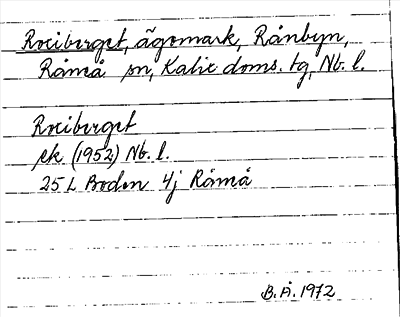 Rociberget, ägomark, Rånbyn,
Råneå sn, Kalix doms. tg, Nb. l.
Rociberget
ek (1952) Nb. l.
25 L Boden 4j Råneå
B.Å. 1972